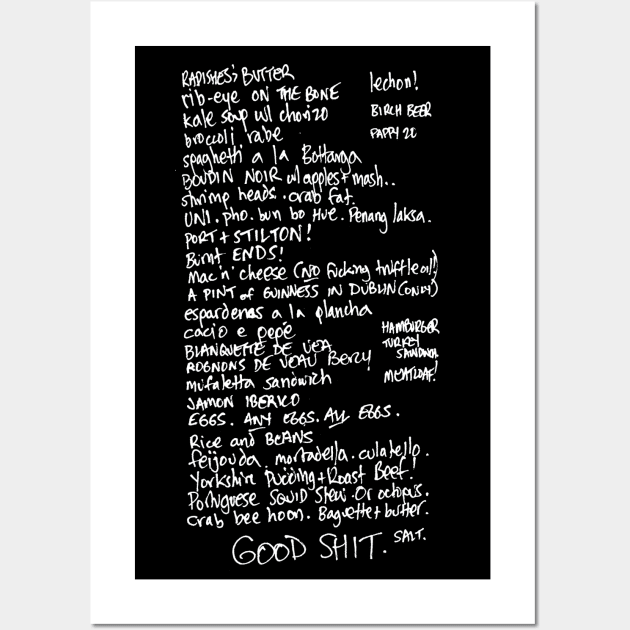 RADISHES; BUTTER
rib-eye ON THE BONE
kale soup w/ chorizo
broccoli rabe
lechon!
BIRCH BEER
PAPPY 20
spaghetti a la Bottarga
BOUDIN NOIR w/ apples + mash..
shrimp heads. crab fat.
UNI. pho. bun bo Hue. Penang laksa.
PORT + STILTON!
Burnt ENDS!
Mac 'n' cheese (NO fucking truffle oil!)
A PINT of GUINNESS IN DUBLIN (ONLY)
espardenas a la plancha
cacio e pepe
BLANQUETTE DE VEA
ROGNONS DE VEAU Bercy
mufaletta sandwich
HAMBURGER
TURKEY
SANDWICH
MEATLOAF!
JAMON IBERICO
EGGS. ANY EGGS. All EGGS.
Rice and BEANS
feijouda. mortadella. culatello.
Yorkshire Pudding + Roast Beef!
Portuguese SQUID Stew. Or octopus.
Crab bee hoon. Baguette + butter.
GOOD SHIT.
SALT.